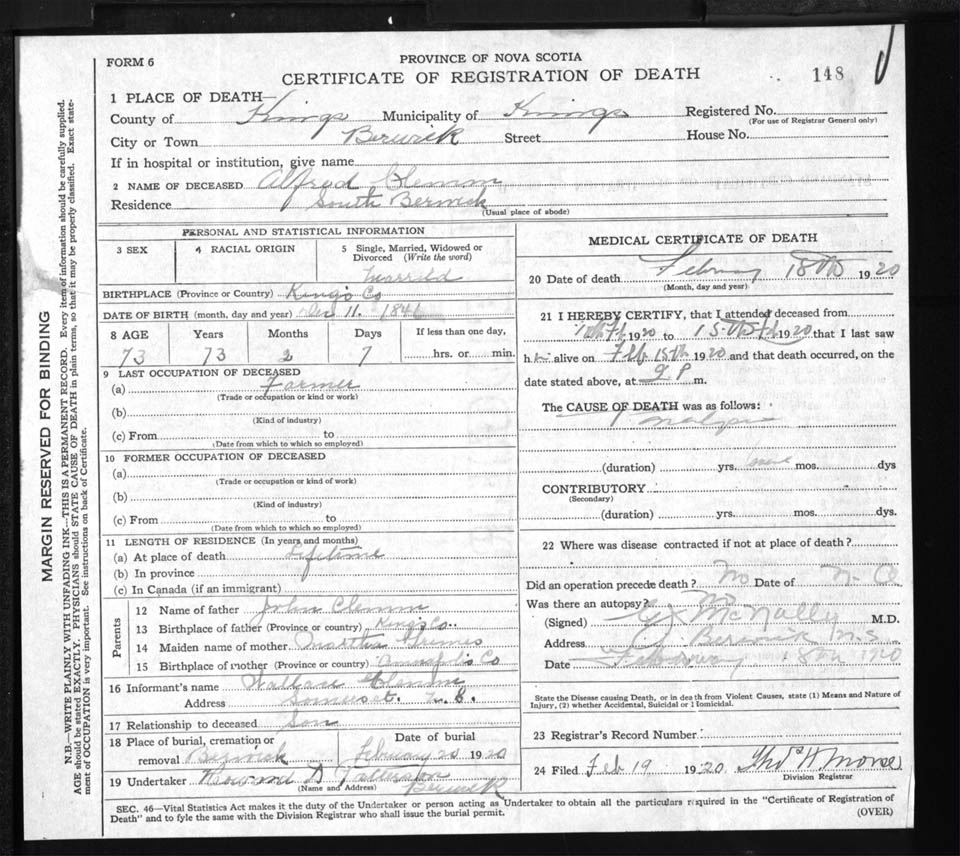 FORM 6
PROVINCE OF NOVA SCOTIA
CERTIFICATE OF REGISTRATION OF DEATH
148
1 PLACE OF DEATH—
County of Kings Municipality of Kings Registered No.
(For use of Registrar General only)
City or Town Berwick Street House No.
If in hospital or institution, give name
2 NAME OF DECEASED Alfred Clemm
Residence South Berwick
(Usual place of abode)
PERSONAL AND STATISTICAL INFORMATION
3 SEX
4 RACIAL ORIGIN
5 Single, Married, Widowed or Divorced (Write the word)
Married
BIRTHPLACE (Province or Country) Kings Co
DATE OF BIRTH (month, day and year) Dec 11. 1846
8 AGE Years Months Days If less than one day,
73 73 2 7 hrs. or min.
9 LAST OCCUPATION OF DECEASED
(a) Farmer
(Trade or occupation or kind or work)
(b)
(Kind of industry)
(c) From to
(Date from which to which so employed)
10 FORMER OCCUPATION OF DECEASED
(a)
(Trade or occupation or kind of work)
(b)
(Kind of industry)
(c) From to
(Date from which to which so employed)
11 LENGTH OF RESIDENCE (In years and months)
(a) At place of death Lifetime
(b) In province
(c) In Canada (if an immigrant)
Parents
12 Name of father John Clemm
13 Birthplace of father (Province or country) Kings Co.
14 Maiden name of mother Martha
15 Birthplace of mother (Province or country) Annapolis Co
16 Informant's name Wallace Clemm
Address Somerset. N. S.
17 Relationship to deceased Son
18 Place of burial, cremation or removal Berwick
Date of burial
February 20 1920
19 Undertaker D Patterson
(Name and Address) Berwick
MEDICAL CERTIFICATE OF DEATH
20 Date of death February 18th 1920
(Month, day and year)
21 I HEREBY CERTIFY, that I attended deceased from
Feb 1920 to Feb 1920 that I last saw
him alive on Feb 15th 1920 and that death occurred, on the
date stated above, at 9 P m.
The CAUSE OF DEATH was as follows:
(duration) yrs. mos. dys
CONTRIBUTORY
(Secondary)
(duration) yrs. mos. dys.
22 Where was disease contracted if not at place of death?
Did an operation precede death? No Date of
Was there an autopsy? No
(Signed) McNally M.D.
Address Berwick N.S
Date February 18th 1920
State the Disease causing Death, or in death from Violent Causes, state (1) Means and Nature of
Injury, (2) whether Accidental, Suicidal or Homicidal.
23 Registrar's Record Number
24 Filed Feb 19 1920.
Division Registrar
SEC. 46—Vital Statistics Act makes it the duty of the Undertaker or person acting as Undertaker to obtain all the particulars required in the "Certificate of Registration of
Death" and to fyle the same with the Division Registrar who shall issue the burial permit.
(OVER)
MARGIN RESERVED FOR BINDING
N.B.—WRITE PLAINLY WITH UNFADING INK—THIS IS A PERMANENT RECORD. Every item of information should be carefully supplied.
AGE should be stated EXACTLY. PHYSICIANS should STATE CAUSE OF DEATH in plain terms, so that it may be properly classified. Exact state-
ment of OCCUPATION is very important. See instructions on back of Certificate.